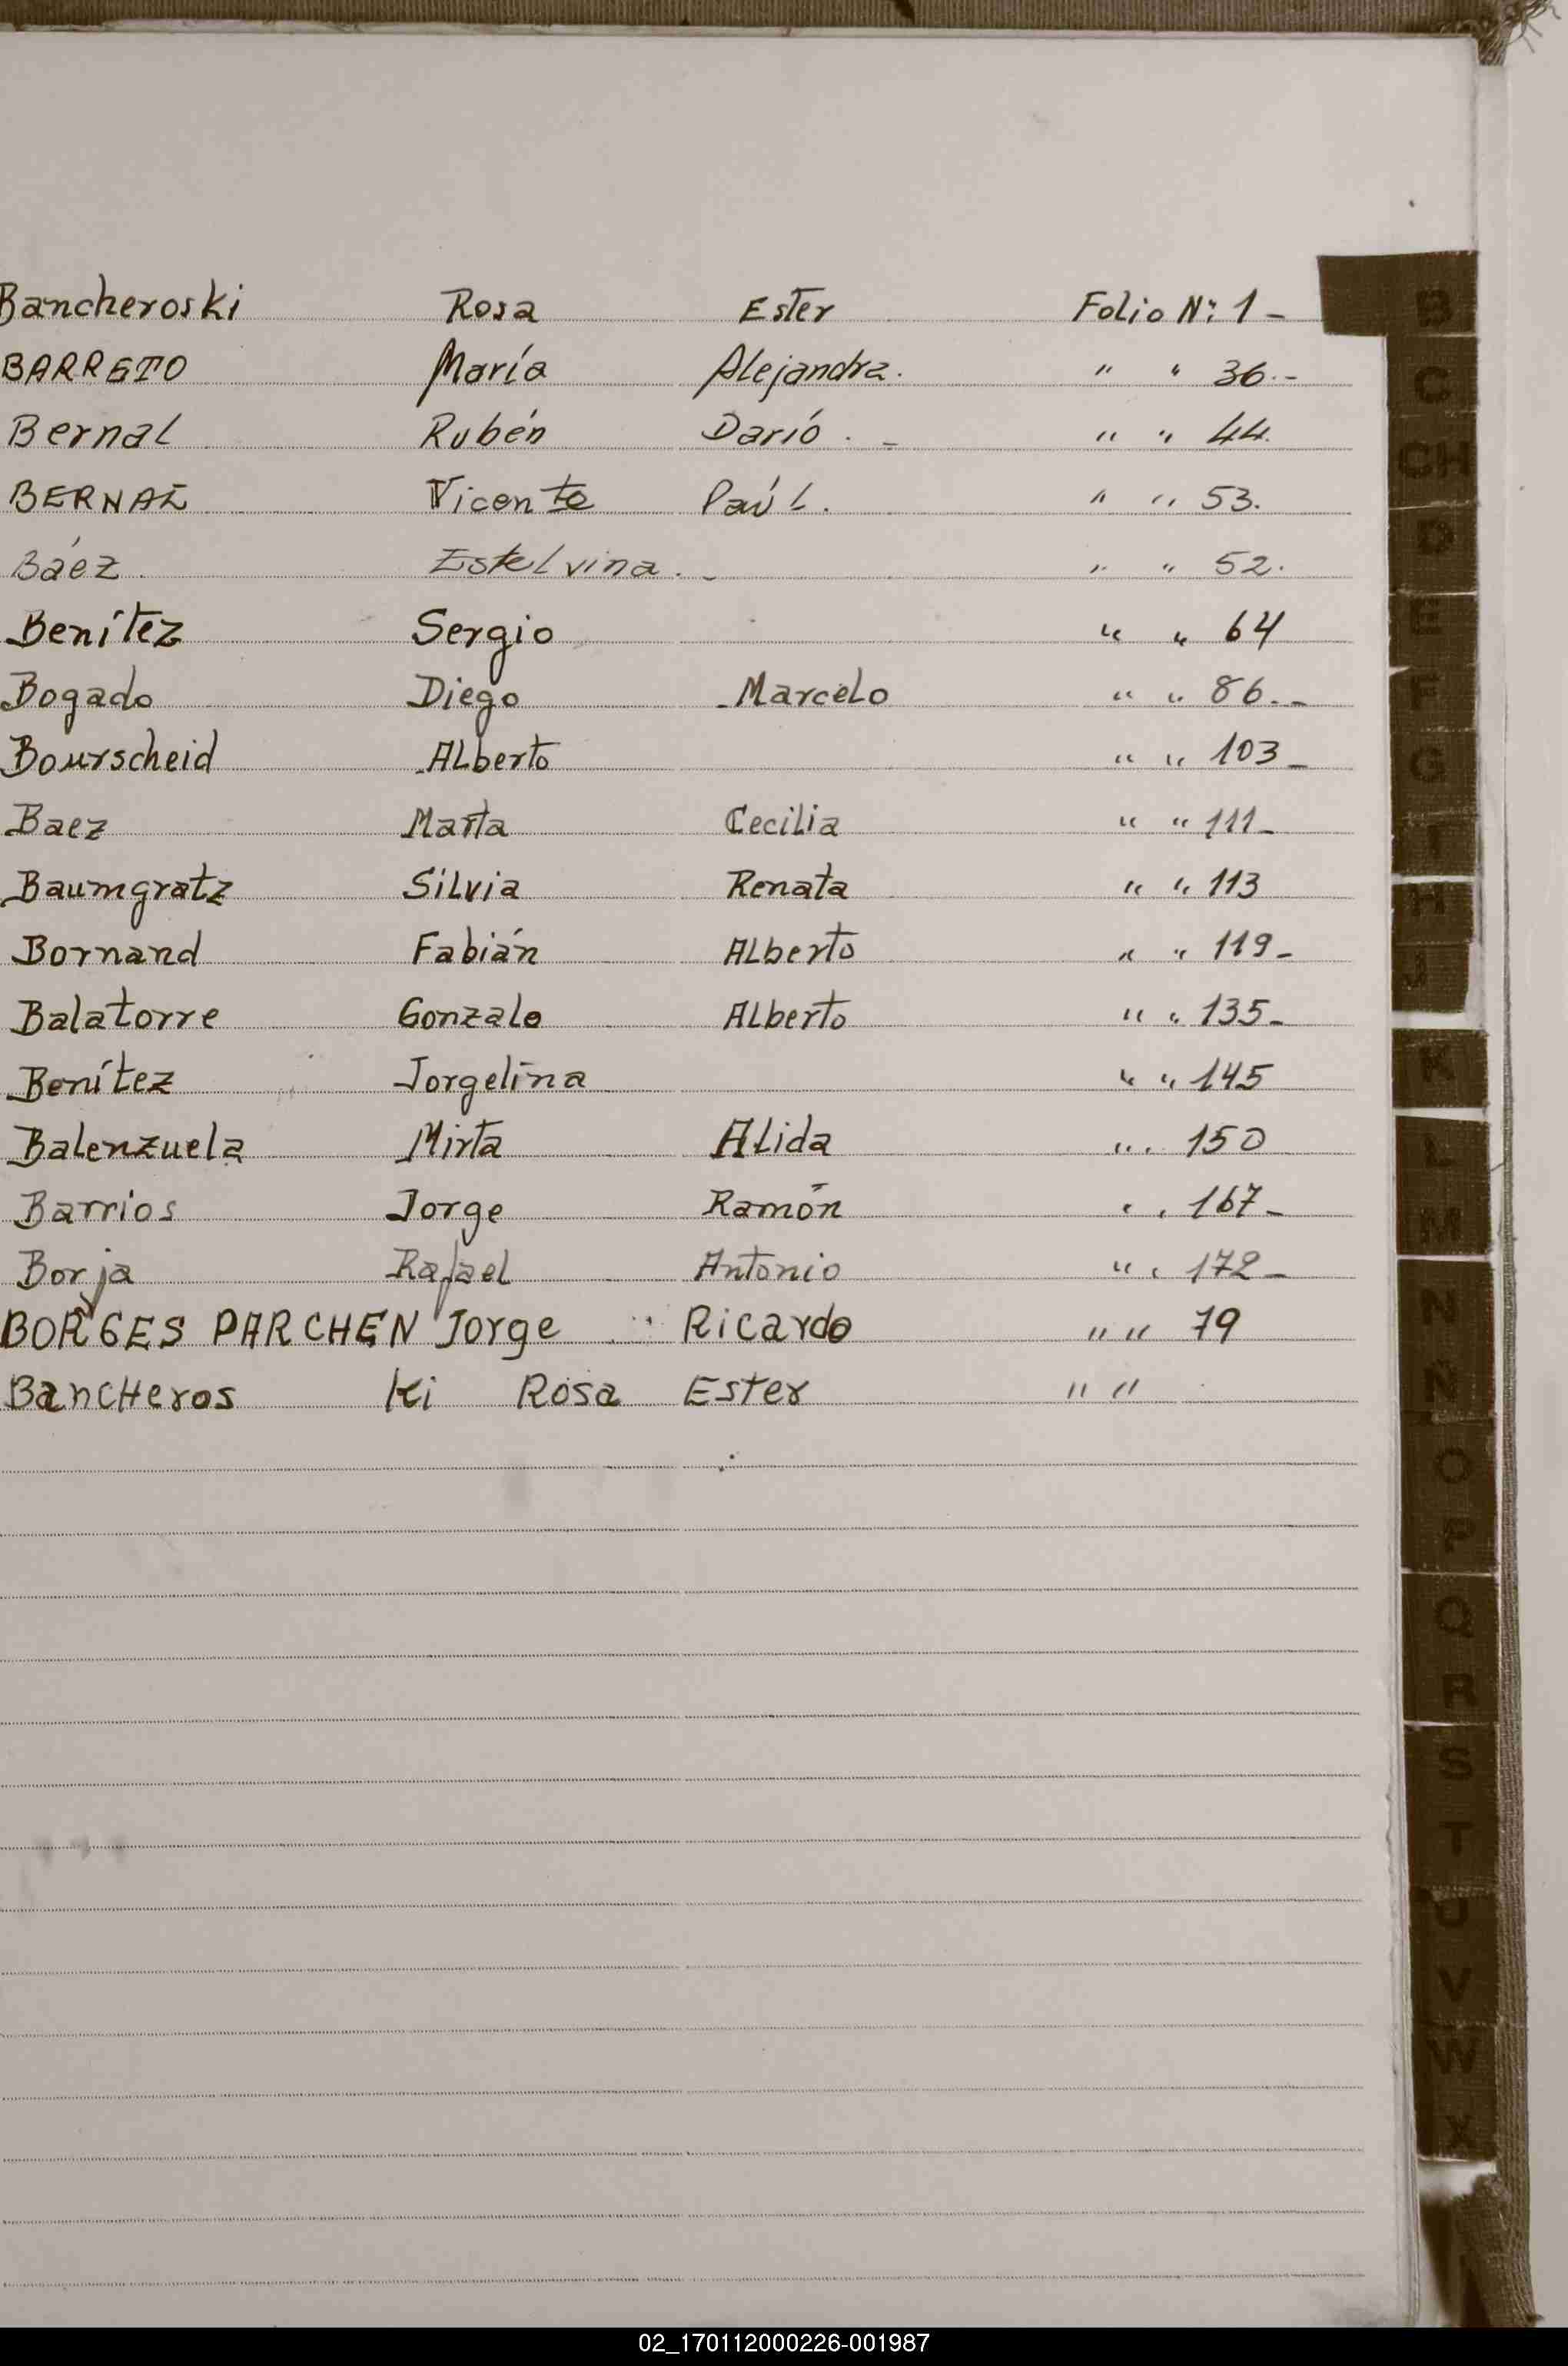 Bancheroski Rosa Ester Folio Nº: 1 -
BARRETO María Alejandra. " " 36.-
Bernal Rubén Darió . - " " 44.
BERNAL Vicente Paúl. " " 53.
Báez. Estelvina. - " " 52.
Benítez Sergio " " 64
Bogado Diego Marcelo " " 86.-
Bourscheid Alberto " " 103-
Baez Marta Cecilia " " 111-
Baumgratz Silvia Renata " " 113
Bornand Fabián Alberto " " 119-
Balatorre Gonzalo Alberto " " 135-
Benítez Jorgelina " " 145
Balenzuela Mirta Alida " " 150
Barrios Jorge Ramón " " 167-
Borja Rafael Antonio " " 172-
BORGES PARCHEN Jorge Ricardo " " 79
BancHeros Ki Rosa Ester " "
B
C
CH
D
E
F
G
I
H
J
K
L
M
N
Ñ
O
P
Q
R
S
T
U
V
W
X
02_170112000226-001987